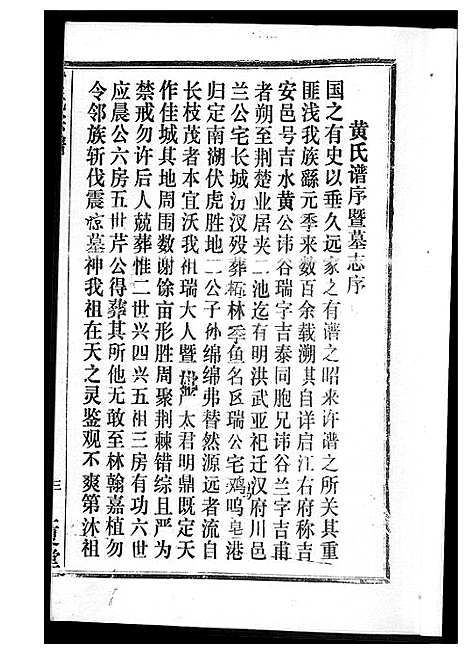 黄氏谱序暨墓志序
国之有史以垂久远家之有谱之昭来许谱之所关其重
匪浅我族繇元季来数百余载溯其自详启江右府称吉
安邑号吉水黄公讳谷瑞字吉泰同胞兄讳谷兰字吉甫
者朔至荆楚业居夹二池迄有明洪武亚祀迁汉府川邑
兰公宅长城汸汊殁葬栢林季鱼名区瑞公宅鸡鸣皂港
归定南湖伏虎胜地二公子孙绵绵弗替然源远者流自
长枝茂者本宜沃我祖瑞大人暨 严太君明鼎既定天
作佳城其地周围数谢馀亩形胜周聚荆棘错综且严为
禁戒勿许后人兢葬惟二世兴四兴五祖三房有功六世
应晨公六房五世芹公得葬其所他无敢至林翰嘉植勿
令邻族斩伐震惊墓神我祖在天之灵鉴观不爽第沐祖
三